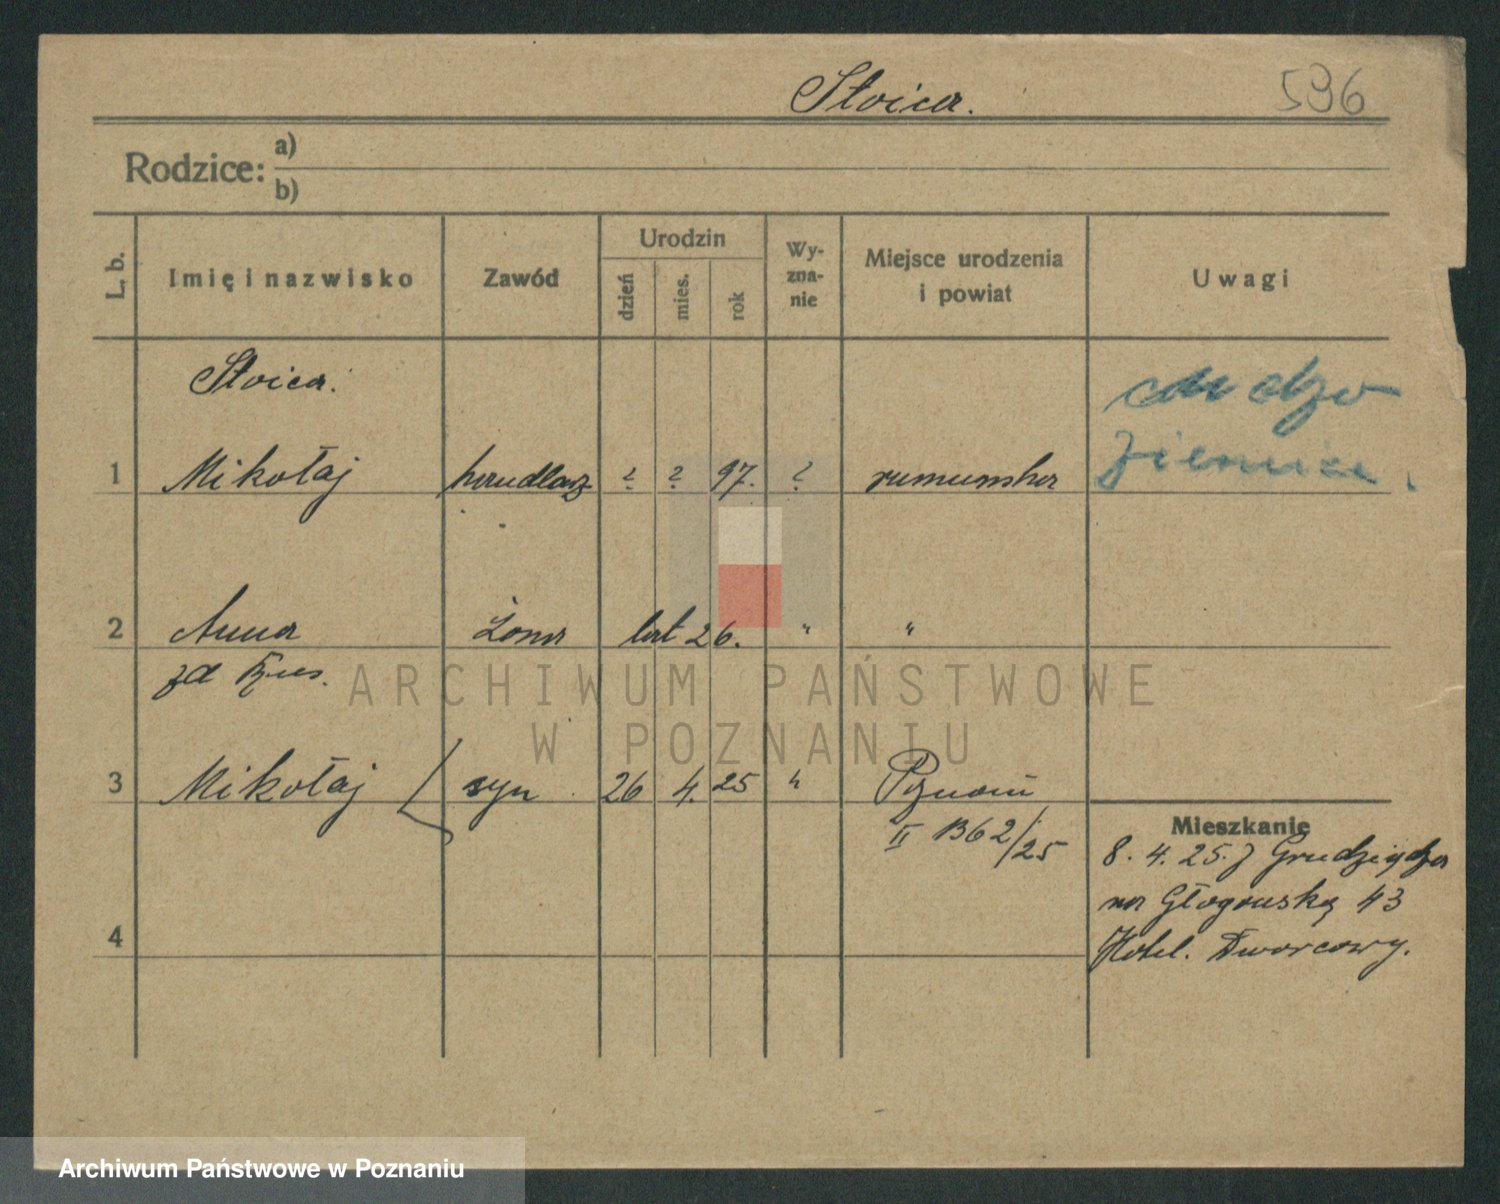 Stoica.
596
Rodzice:
a)
b)
L. b.
Imię i nazwisko
Zawód
Urodzin
dzień
mies.
rok
Wy-
zna-
nie
Miejsce urodzenia
i powiat
Uwagi
Stoica.
1 Mikołaj handlarz ? ? 97. ? rumunska
cudzo
ziemiec.
2 Anna żona lat 26. " "
zd
3 Mikołaj syn 26 4. 25 " Poznań
II 1362/25
Mieszkanie
8. 4. 25. z Grudziądza
na Głogouską 43
Hotel. Dworcowy.
4
ARCHIWUM PAŃSTWOWE
W POZNANIU
Archiwum Państwowe w Poznaniu